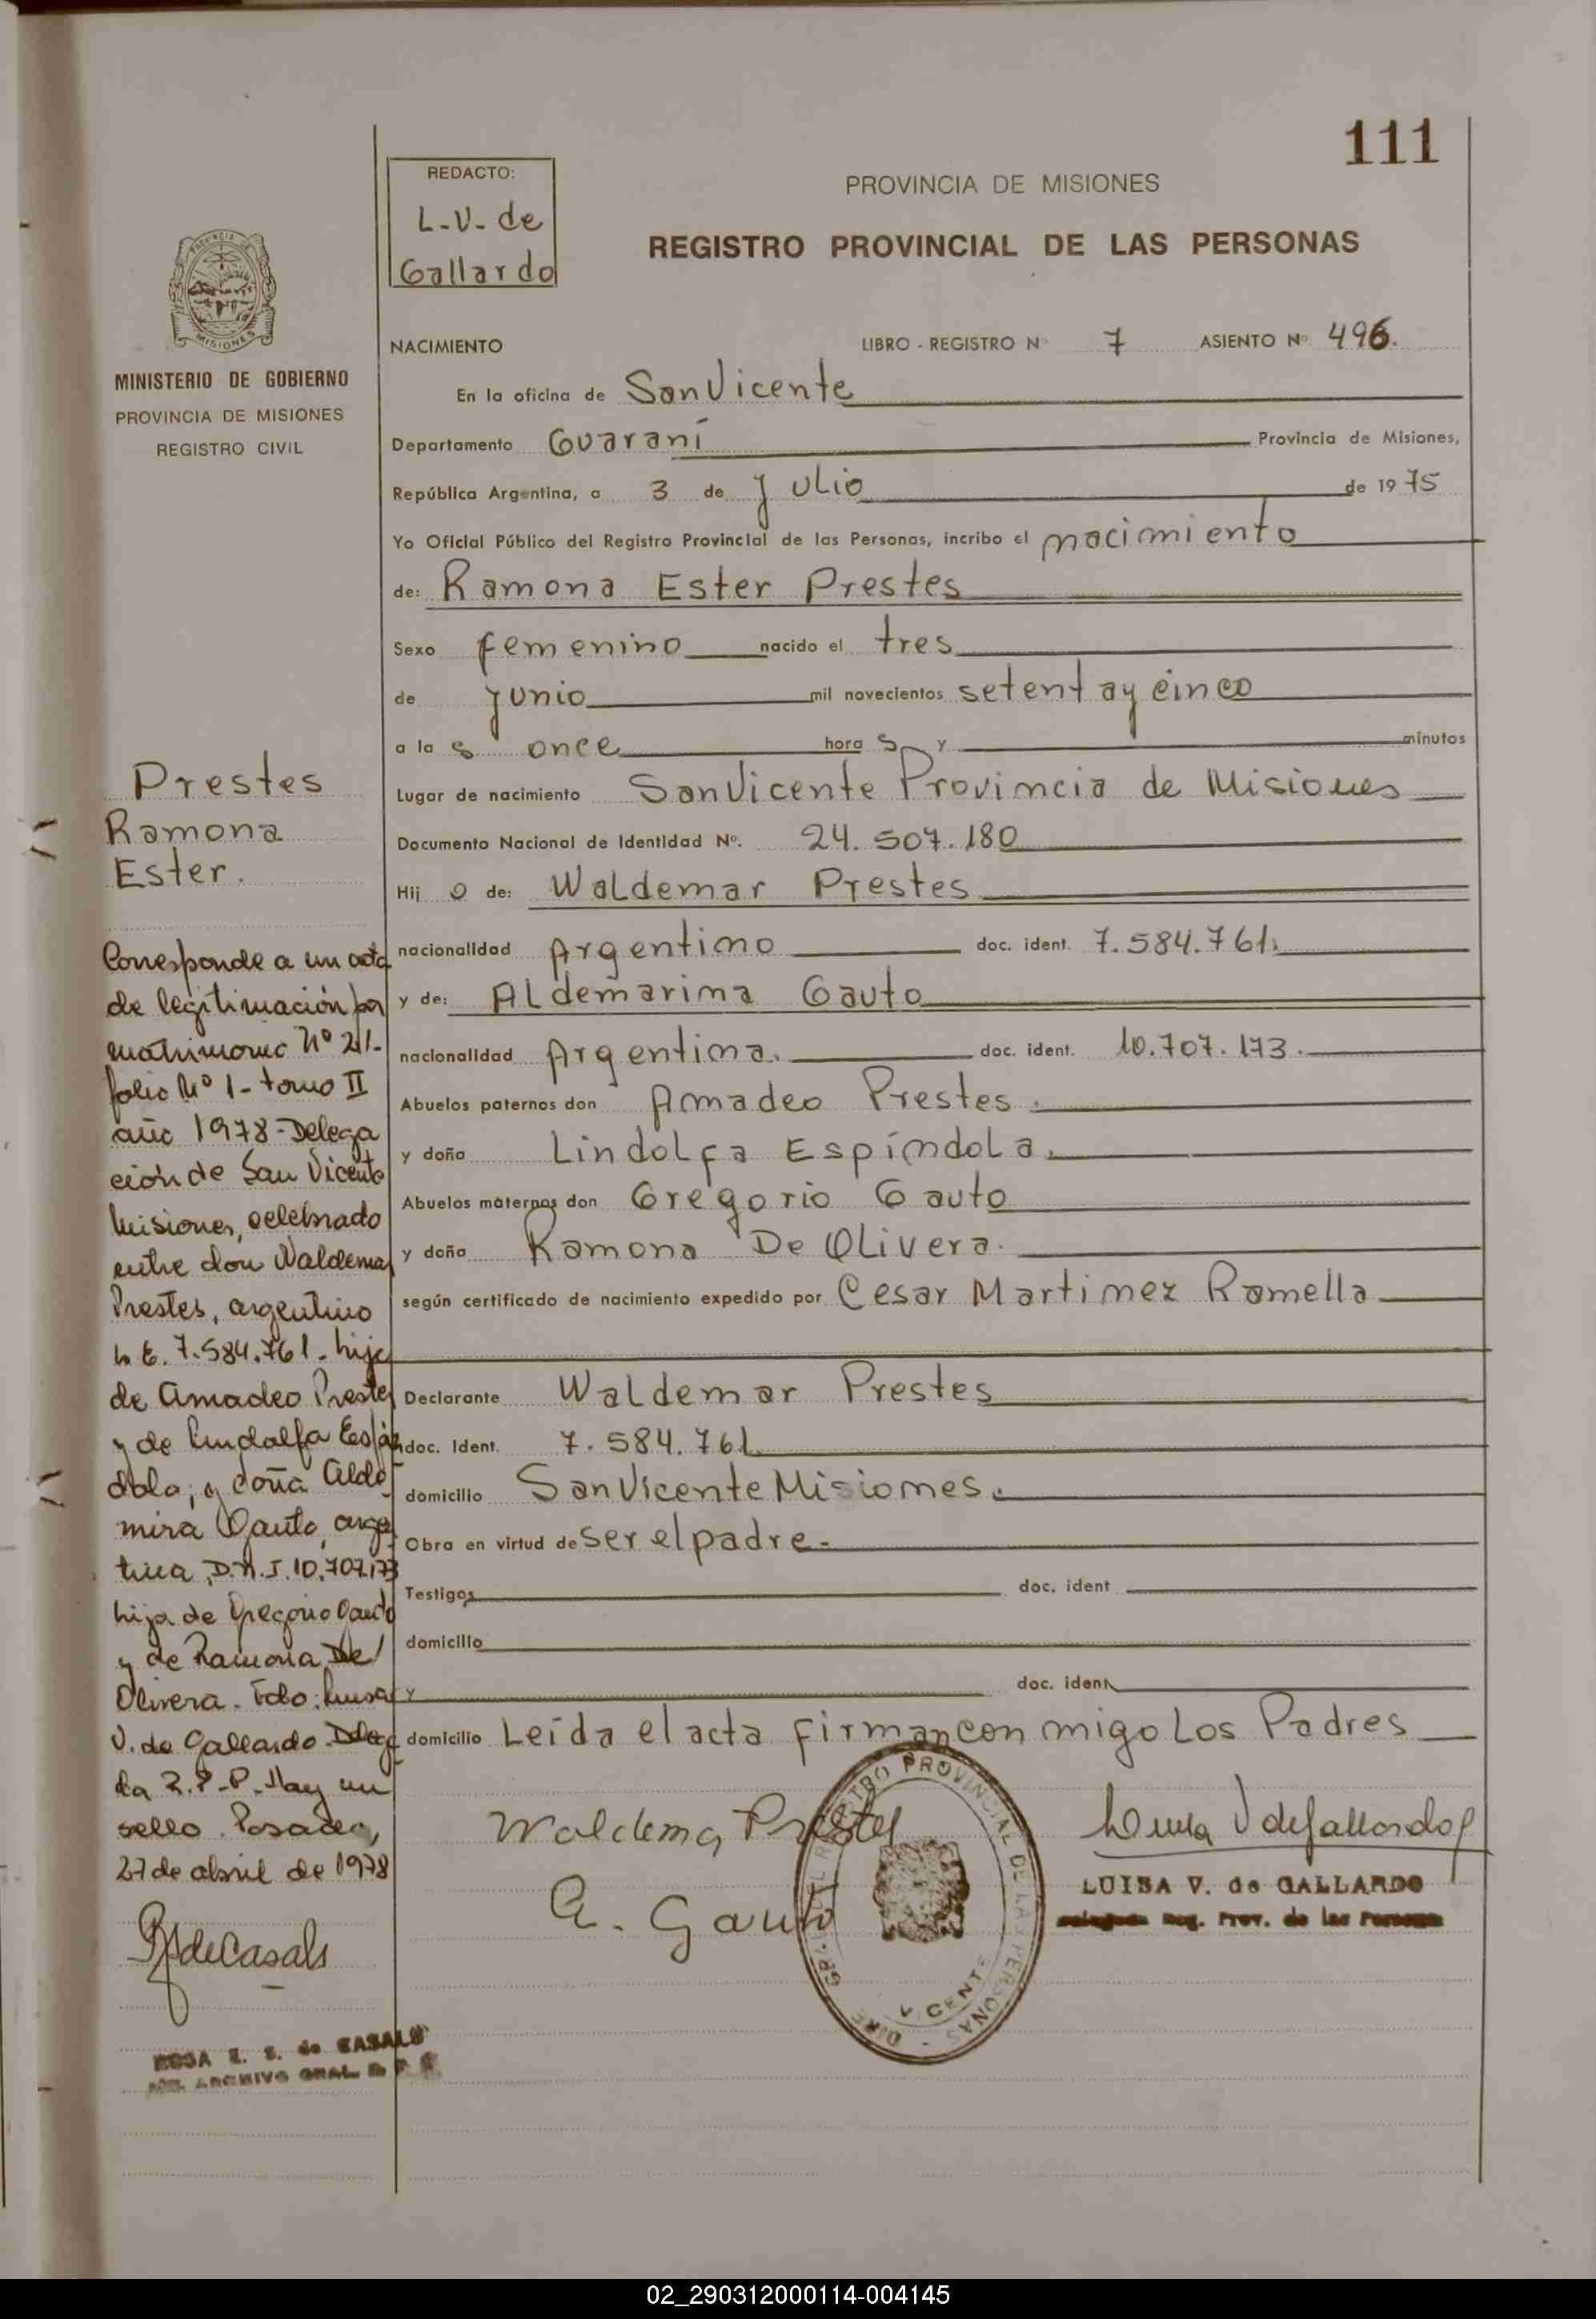 111
REDACTO:
L-V- de
Gallardo
PROVINCIA DE MISIONES
REGISTRO PROVINCIAL DE LAS PERSONAS
MINISTERIO DE GOBIERNO
PROVINCIA DE MISIONES
REGISTRO CIVIL
NACIMIENTO LIBRO - REGISTRO Nº 7 ASIENTO Nº 496.
En la oficina de San Vicente
Departamento Guaraní Provincia de Misiones,
República Argentina, a 3 de Julio de 1975
Yo Oficial Público del Registro Provincial de las Personas, incribo el nacimiento
de: Ramona Ester Prestes
Sexo femenino nacido el tres
de junio mil novecientos setenta y cinco
a la s once hora s y minutos
Lugar de nacimiento San Vicente Provincia de Misiones
Documento Nacional de Identidad Nº. 24.507.180
Hij o de: Waldemar Prestes
nacionalidad Argentino doc. ident. 7.584.761.
y de: Aldemarina Gauto
nacionalidad Argentina. doc. ident. 10.707.173.
Abuelos paternos don Amadeo Prestes.
y doña Lindolfa Espíndola.
Abuelos maternos don Gregorio Gauto
y doña Ramona De Olivera.
según certificado de nacimiento expedido por Cesar Martinez Ramella
Declarante Waldemar Prestes
doc. Ident. 7.584.761
domicilio San Vicente Misiones.
Obra en virtud de ser el padre.
Testigos doc. ident
domicilio
y doc. ident
domicilio Leída el acta firman con migo Los Padres
Waldemar Prestes
A. Gauto
LUISA V. de GALLARDO
Delegada Reg. Prov. de las Personas
Prestes
Ramona
Ester.
Corresponde a un acta
de legitimación por
matrimonio Nº 21-
folio Nº 1- tomo II
año 1978- Delega
ción de San Vicente
Misiones, celebrado
entre don Waldemar
Prestes, argentino
L E. 7.584.761- hijo
de Amadeo Prestes
y de Lindalfa Espín
dola; y doña Alde
mira Gauto, argen
tina, D.N.I. 10.707.173
hija de Gregorio Gauto
y de Ramona De
Olivera. Fdo: Luisa
V. de Gallardo Delega
da R.P.P. Hay un
sello. Posadas,
27 de abril de 1978
de Casals
ROSA E. S. de CASALS
ARCHIVO GRAL. R P P
REGISTRO PROVINCIAL DE LAS PERSONAS
02_290312000114-004145